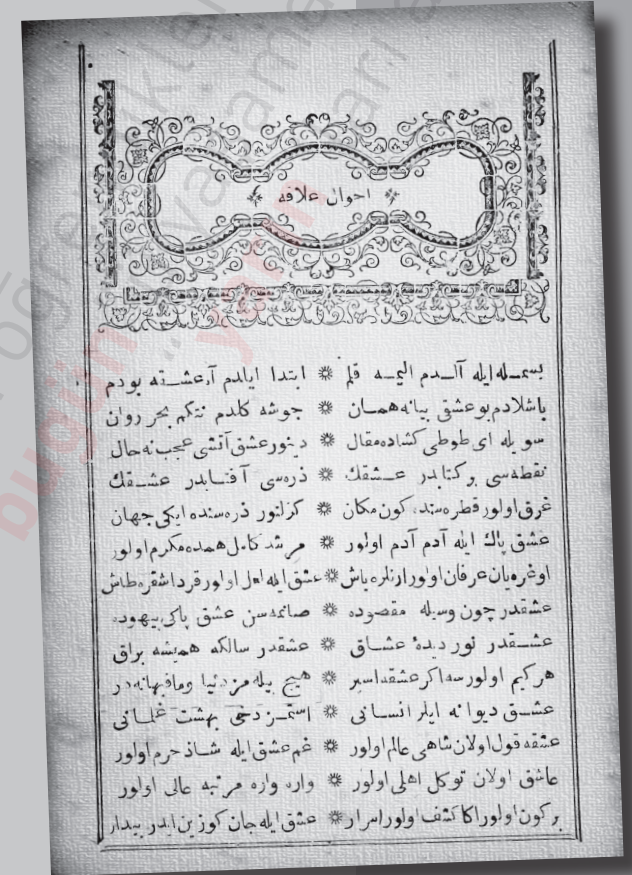 احوال علاقه
بسمله ایله آلدم الیمه قلم ابتدا ایلدم آه عشقه بودم
باشلادم بو عشقی بیانه همان جوشه کلدم نتکم بحر روان
سویله ای طوطی کشاده مقال دینور عشق آتشی عجب نه حال
نقطه‌سی بر کتابدر عشقك ذره‌سی آفتابدر عشقك
غرق اولور قطره‌سنده کون مکان کزلنور ذره‌سنده ایکی جهان
عشق پاك ایله آدم آدم اولور مرشد کامل همده مکرم اولور
اوغرویان عرفان اولور ارنلره باش عشق ایله لعل اولور قرداشم قره طاش
عشقدر چون وسیله مقصوده صانمه سن عشق پاکی بیهوده
عشقدر نور دیدۀ عشاق عشقدر سالکه همیشه براق
هرکیم اولورسه اکر عشقه اسیر هیچ بیله مز دنیا ومافیها نه در
عشق دیوانه ایلر انسانی استمز دخی بهشت غلمانی
عشقه قول اولان شاهی عالم اولور غم عشق ایله شاذ حرم اولور
عاشق اولان توکل اهلی اولور واره واره مرتبه عالی اولور
بر کون اولور اکا کشف اولور اسرار عشق ایله جان کوزین ایدر بیدار